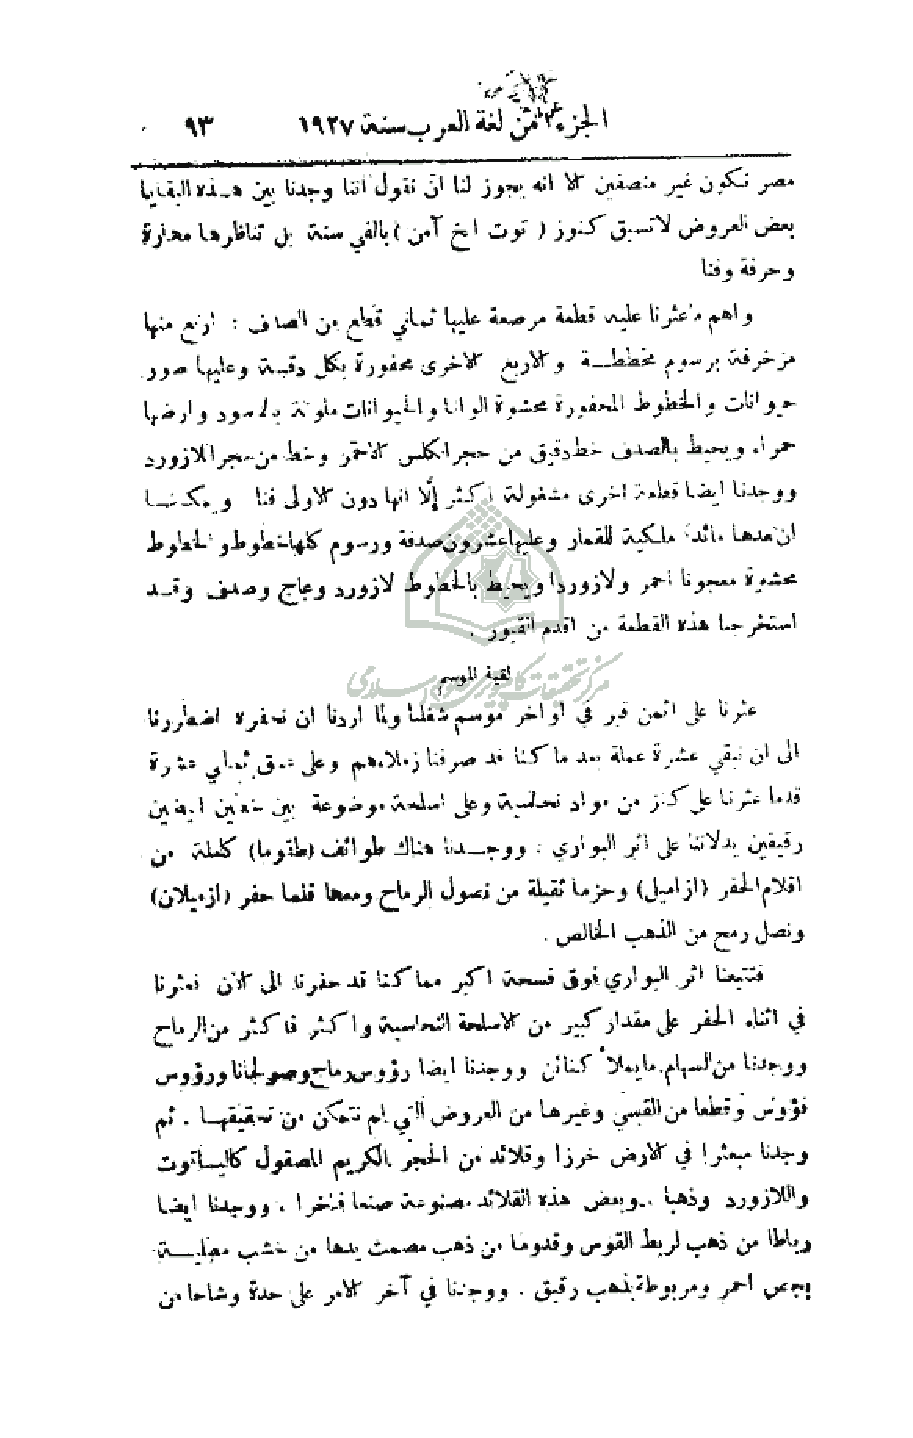 الجزء ٢ من لغة العرب سنة ١٩٢٧ ٩٣
مصر نكون غير منصفين الا انه يجوز لنا ان نقول اننا وجدنا بين هذه البقايا
بعض العروض لاتسبق كنوز ( توت انخ آمن ) بالفي سنة بل تناظرها مهارة
وحرفة وفنا
واهم ما عثرنا عليه قطعة مرصعة عليها ثماني قطع من الصدف : اربع منها
مزخرفة برسوم مخططــة والاربع الاخرى محفورة بكل دقـة وعليها صور
حيوانات والخطوط المحفورة محشوة الوانا والحيوانات ملونة بالاسود وارضها
حمراء ويحيط بالصدف خط دقيق من حجر الكلس الاحمر وخط من حجر اللازورد
ووجدنا ايضا قطعة اخرى مشغولة اكثر إلّا انها دون الاولى فنا ويمكننــا
ان نعدها مائدة ملكية للقمار وعليها عشرون صدفة ورسوم كلها خطوط والخطوط
محشوة معجونا احمر ولازوردا ويحيط بالخطوط لازورد وعاج وصدف وقــد
استخرجنا هذه القطعة من اقدم القبور .
مركز تحقيقات كامپيوترى علوم اسلامى
لقية الموسم
عثرنا على اثمن قبر في اواخر موسم شغلنا ولما اردنا ان نحفره اضطررنا
الى ان نبقي عشرة عملة بعد ما كنا قد صرفنا زملاءهم وعلى عمق ثماني عشرة
قدما عثرنا على كنز من مواد نحاسية وعلى اسلحة موضوعة بين خطين ابيضين
رقيقين يدلاننا على اثر البواري : ووجــدنا هناك طوائف (طقوما) كاملة من
اقلام الحفر (ازاميل) وحزما ثقيلة من نصول الرماح ومعها قلما حفر (ازميلان)
ونصل رمح من الذهب الخالص .
فتتبعنا اثر البواري فوق فسحة اكبر مما كنا قد حفرنا الى الآن فعثرنا
في اثناء الحفر على مقدار كبير من الاسلحة النحاسية واكثر فاكثر من الرماح
ووجدنا من السهام ما يملأ كنائن ووجدنا ايضا رؤوس رماح وصولجانا ورؤوس
فؤوس وقطعا من القسي وغيرها من العروض التي لم نتمكن من تحقيقهــا . ثم
وجدنا مبعثرا في الارض خرزا وقلائد من الحجر الكريم المصقول كاليــاقوت
واللازورد وذهبا . وبعض هذه القلائد مصنوعة صنعا فاخرا . ووجدنا ايضا
رباطا من ذهب لربط القوس وقدوما من ذهب مصمت يدها من خشب مطليــة
بجص احمر ومربوطة بذهب رقيق . ووجدنا في آخر الامر على حدة وشاحا من